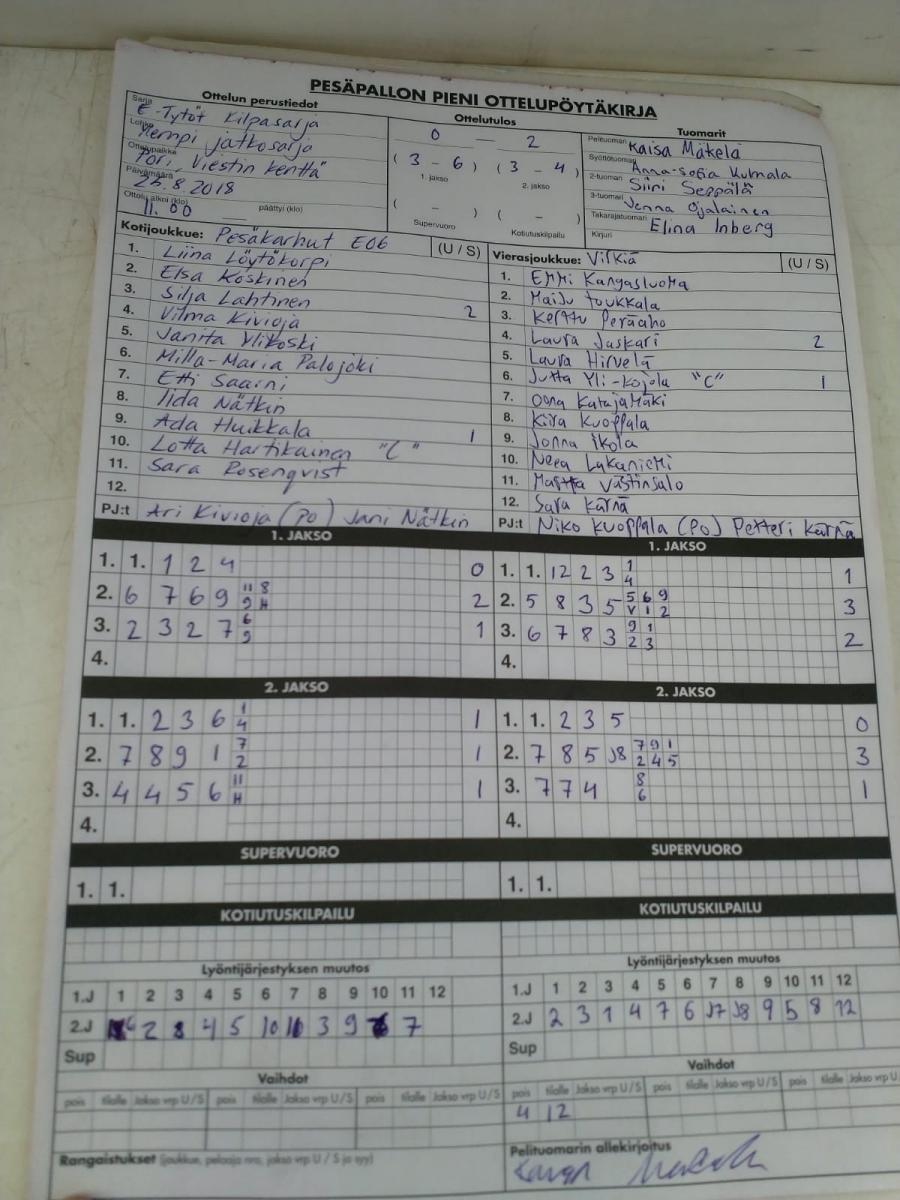 PESÄPALLON PIENI OTTELUPÖYTÄKIRJA
Ottelun perustiedot
Sarja E-Tytöt Kilpasarja
Lohko Ylempi jatkosarja
Ottelupaikka Pori, Viestin kenttä
Päivämäärä 25.8.2018
Ottelu alkoi (klo) 11.00 päättyi (klo)
Ottelutulos
0 — 2
(3 - 6) (3 - 4)
1. jakso 2. jakso
( - ) ( - )
Supervuoro Kotiutuskilpailu
Tuomarit
Pelituomari Kaisa Mäkelä
Syöttötuomari Anna-Sofia Kulmala
2-tuomari Siiri Seppälä
3-tuomari Jenna Ojalainen
Takarajatuomari Elina Inberg
Kirjuri
Kotijoukkue: Pesäkarhut E06 (U / S)
1. Liina Löytökorpi
2. Elsa Koskinen
3. Silja Lahtinen
4. Vilma Kivioja 2
5. Janita Ylikoski
6. Milla-Maria Palojoki
7. Etti Saarni
8. Iida Nätkin
9. Ada Huikkala 1
10. Lotta Hartikainen "C"
11. Sara Rosenqvist
12.
PJ:t Ari Kivioja (PO) Jani Nätkin
Vierasjoukkue: Virkiä (U / S)
1. Emmi Kangasluoma
2. Maiju Joukkala
3. Kerttu Peräaho
4. Laura Jaskari 2
5. Laura Hirvelä
6. Jutta Yli-Kojola "C" 1
7. Oona Katajamäki
8. Kiira Kuoppala
9. Jonna Ikola
10. Neea Lakaniemi
11. Martta Västinsalo
12. Sara Kärnä
PJ:t Niko Kuoppala (PO) Petteri Kärnä
1. JAKSO
1. 1. 1 2 4 0
2. 6 7 6 9 11 8 2
9 H
3. 2 3 2 7 6 1
9
4.
1. JAKSO
1. 1. 12 2 3 1 1
4
2. 5 8 3 5 5 6 9 3
V 1 2
3. 6 7 8 3 9 1 2
2 3
4.
2. JAKSO
1. 1. 2 3 6 1 1
4
2. 7 8 9 1 7 1
2
3. 4 4 5 6 11 1
H
4.
2. JAKSO
1. 1. 2 3 5 0
2. 7 8 5 J8 7 9 1 3
2 4 5
3. 7 7 4 8 1
6
4.
SUPERVUORO
1. 1.
SUPERVUORO
1. 1.
KOTIUTUSKILPAILU
KOTIUTUSKILPAILU
Lyöntijärjestyksen muutos
1.J 1 2 3 4 5 6 7 8 9 10 11 12
2.J 2 8 4 5 10 3 9 7
Sup
Lyöntijärjestyksen muutos
1.J 1 2 3 4 5 6 7 8 9 10 11 12
2.J 2 3 1 4 7 6 J7 J8 9 5 8 12
Sup
Vaihdot
pois tilalle Jakso vrp U / S pois tilalle Jakso vrp U / S pois tilalle Jakso vrp U / S
Vaihdot
pois tilalle Jakso vrp U / S pois tilalle Jakso vrp U / S pois tilalle Jakso vrp U
4 12
Rangaistukset (joukkue, pelaaja nro, jakso vrp U / S ja syy)
Pelituomarin allekirjoitus